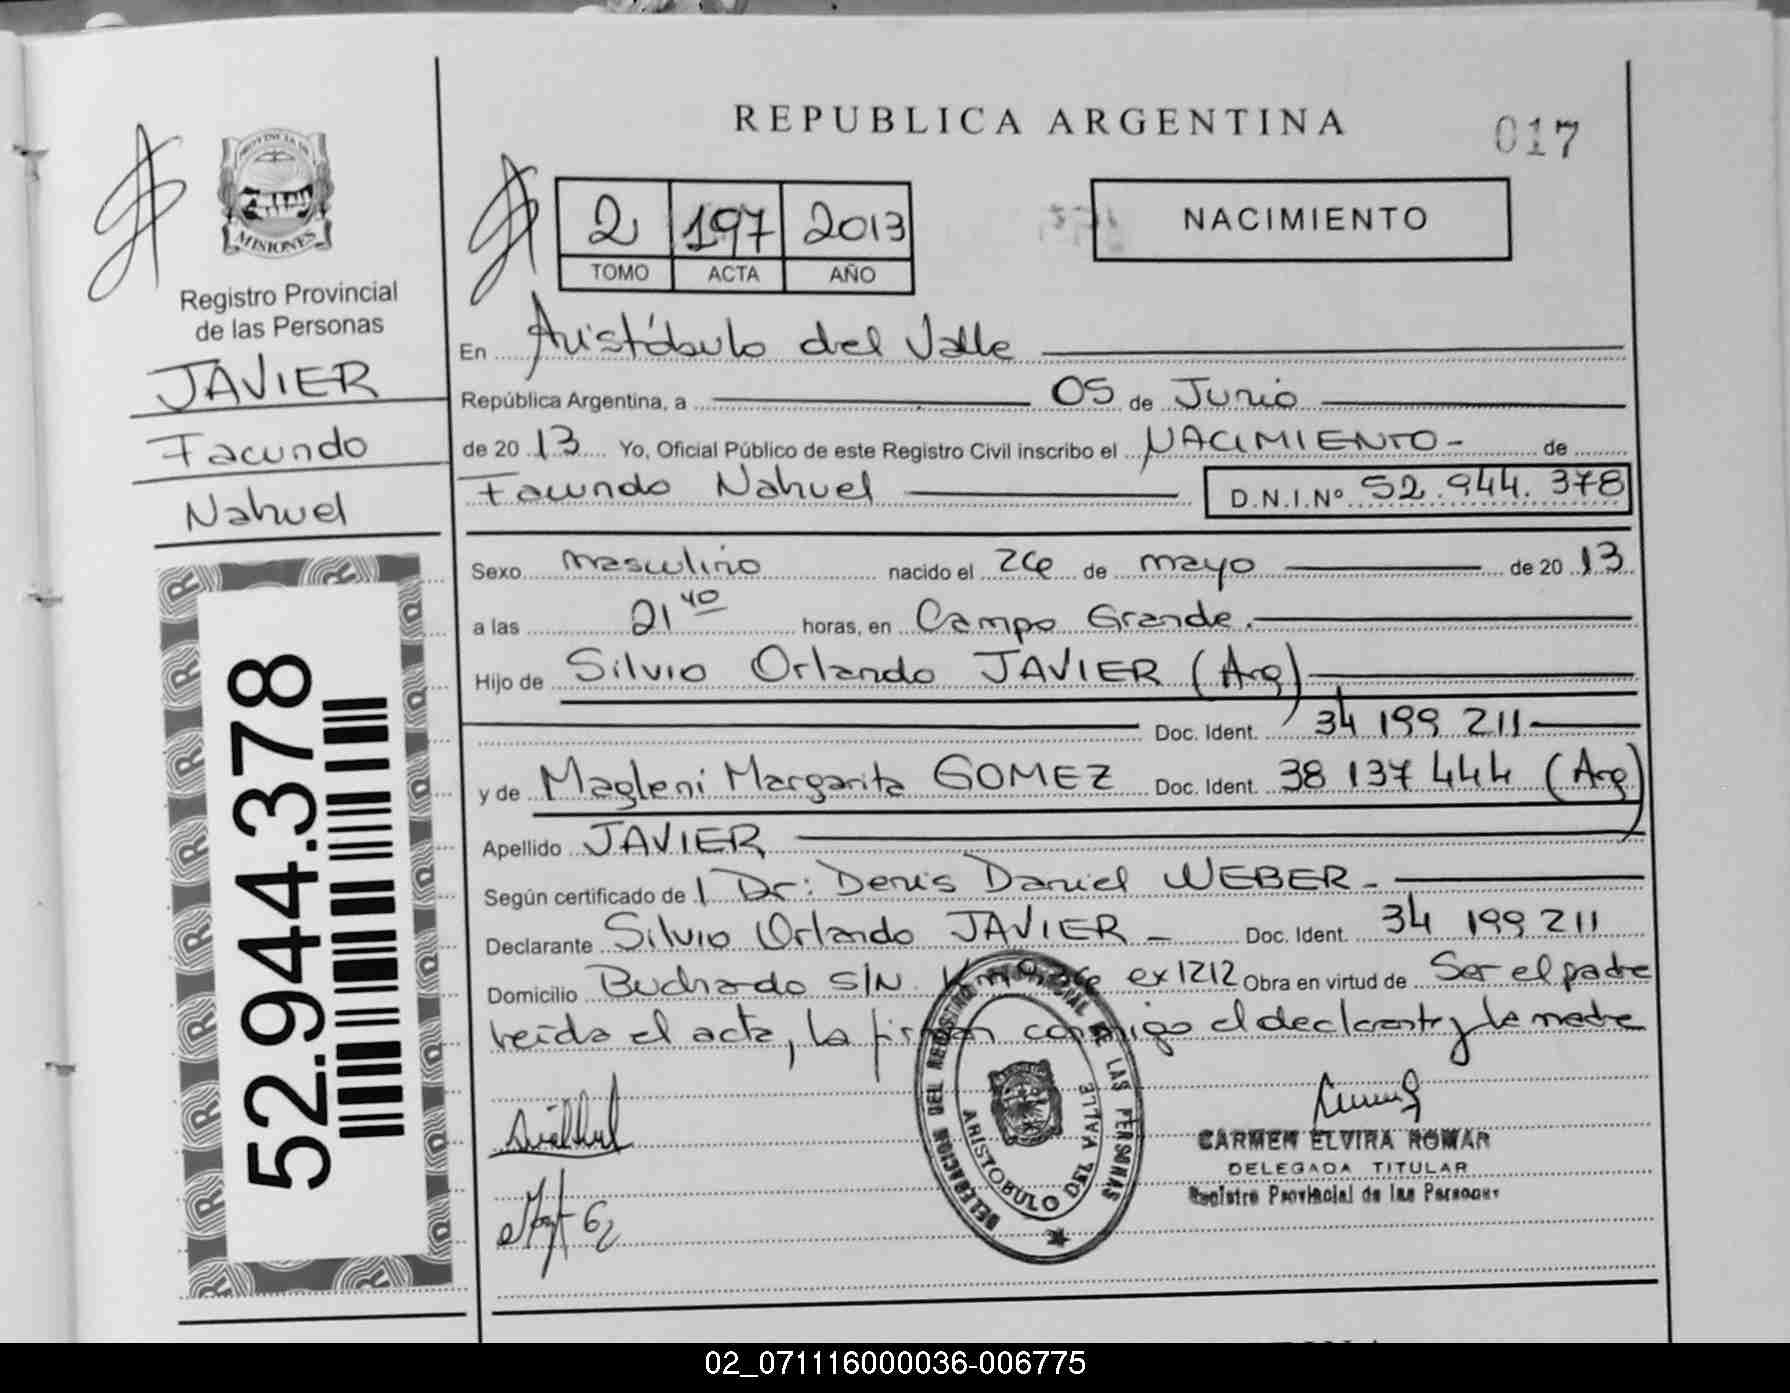 REPUBLICA ARGENTINA
017
PROVINCIA DE
MISIONES
Registro Provincial
de las Personas
JAVIER
Facundo
Nahuel
52.944.378
2 197 2013
TOMO ACTA AÑO
NACIMIENTO
En Aristóbulo del Valle
República Argentina, a 05 de Junio
de 2013 Yo, Oficial Público de este Registro Civil inscribo el NACIMIENTO- de
Facundo Nahuel D.N.I.Nº 52.944.378
Sexo masculino nacido el 26 de mayo de 2013
a las 21 40 horas, en Campo Grande.
Hijo de Silvio Orlando JAVIER (Arg)
Doc. Ident. 34 199 211
y de Magleni Margarita GOMEZ Doc. Ident. 38 137 444 (Arg)
Apellido JAVIER
Según certificado de l Dr: Denis Daniel WEBER-
Declarante Silvio Orlando JAVIER - Doc. Ident. 34 199 211
Domicilio Buchardo S/N. ex 1212 Obra en virtud de Ser el padre
leída el acta, la firman conmigo el declarante y la madre
DELEGACION DEL REGISTRO PROVINCIAL DE LAS PERSONAS
ARISTOBULO DEL VALLE
CARMEN ELVIRA ROMAR
DELEGADA TITULAR
Registro Provincial de las Personas
02_071116000036-006775